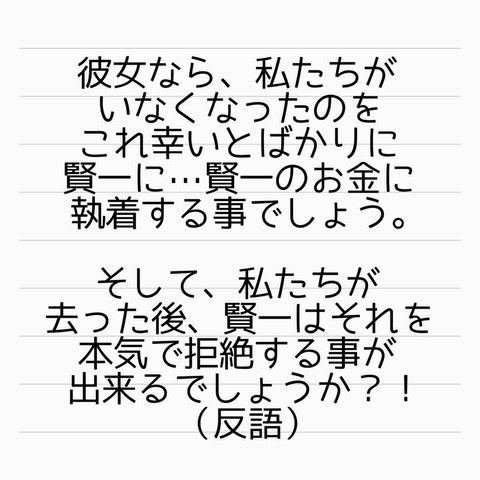 彼女なら、私たちが
いなくなったのを
これ幸いとばかりに
賢一に…賢一のお金に
執着する事でしょう。
そして、私たちが
去った後、賢一はそれを
本気で拒絶する事が
出来るでしょうか？！
（反語）